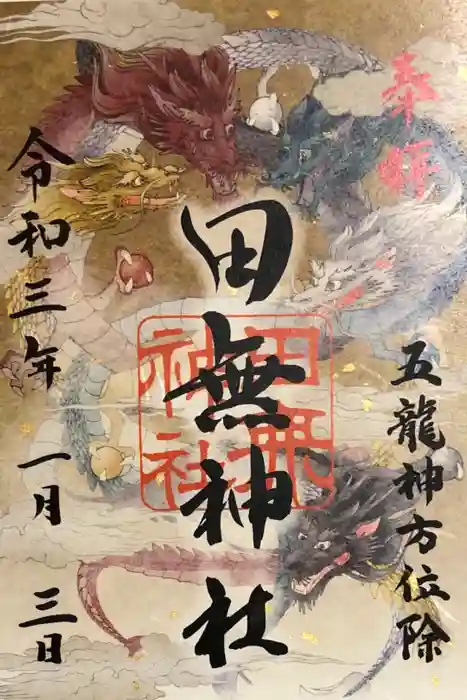 奉拝
五龍神方位除
田無神社
田無
神社
令和三年一月三日